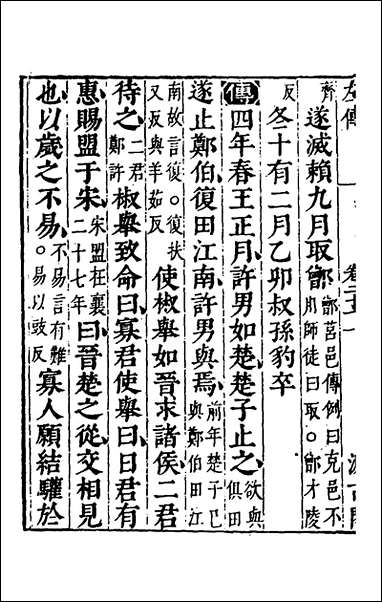 左傳
齊遂滅賴九月取鄫鄫莒邑傳例曰克邑不用師徒曰取○鄫才陵
反冬十有二月乙卯叔孫豹卒
傳四年春王正月許男如楚楚子止之欲與俱田
遂止鄭伯復田江南許男與焉前年楚子已與鄭伯田江
南故言復○復扶又反與羊茹反使椒舉如晉求諸侯二君
待之二君鄭許椒舉致命曰寡君使舉曰日君有
惠賜盟于宋宋盟在襄二十七年曰晉楚之從交相見
也以歲之不易不易言有難○易以豉反寡人願結驩於